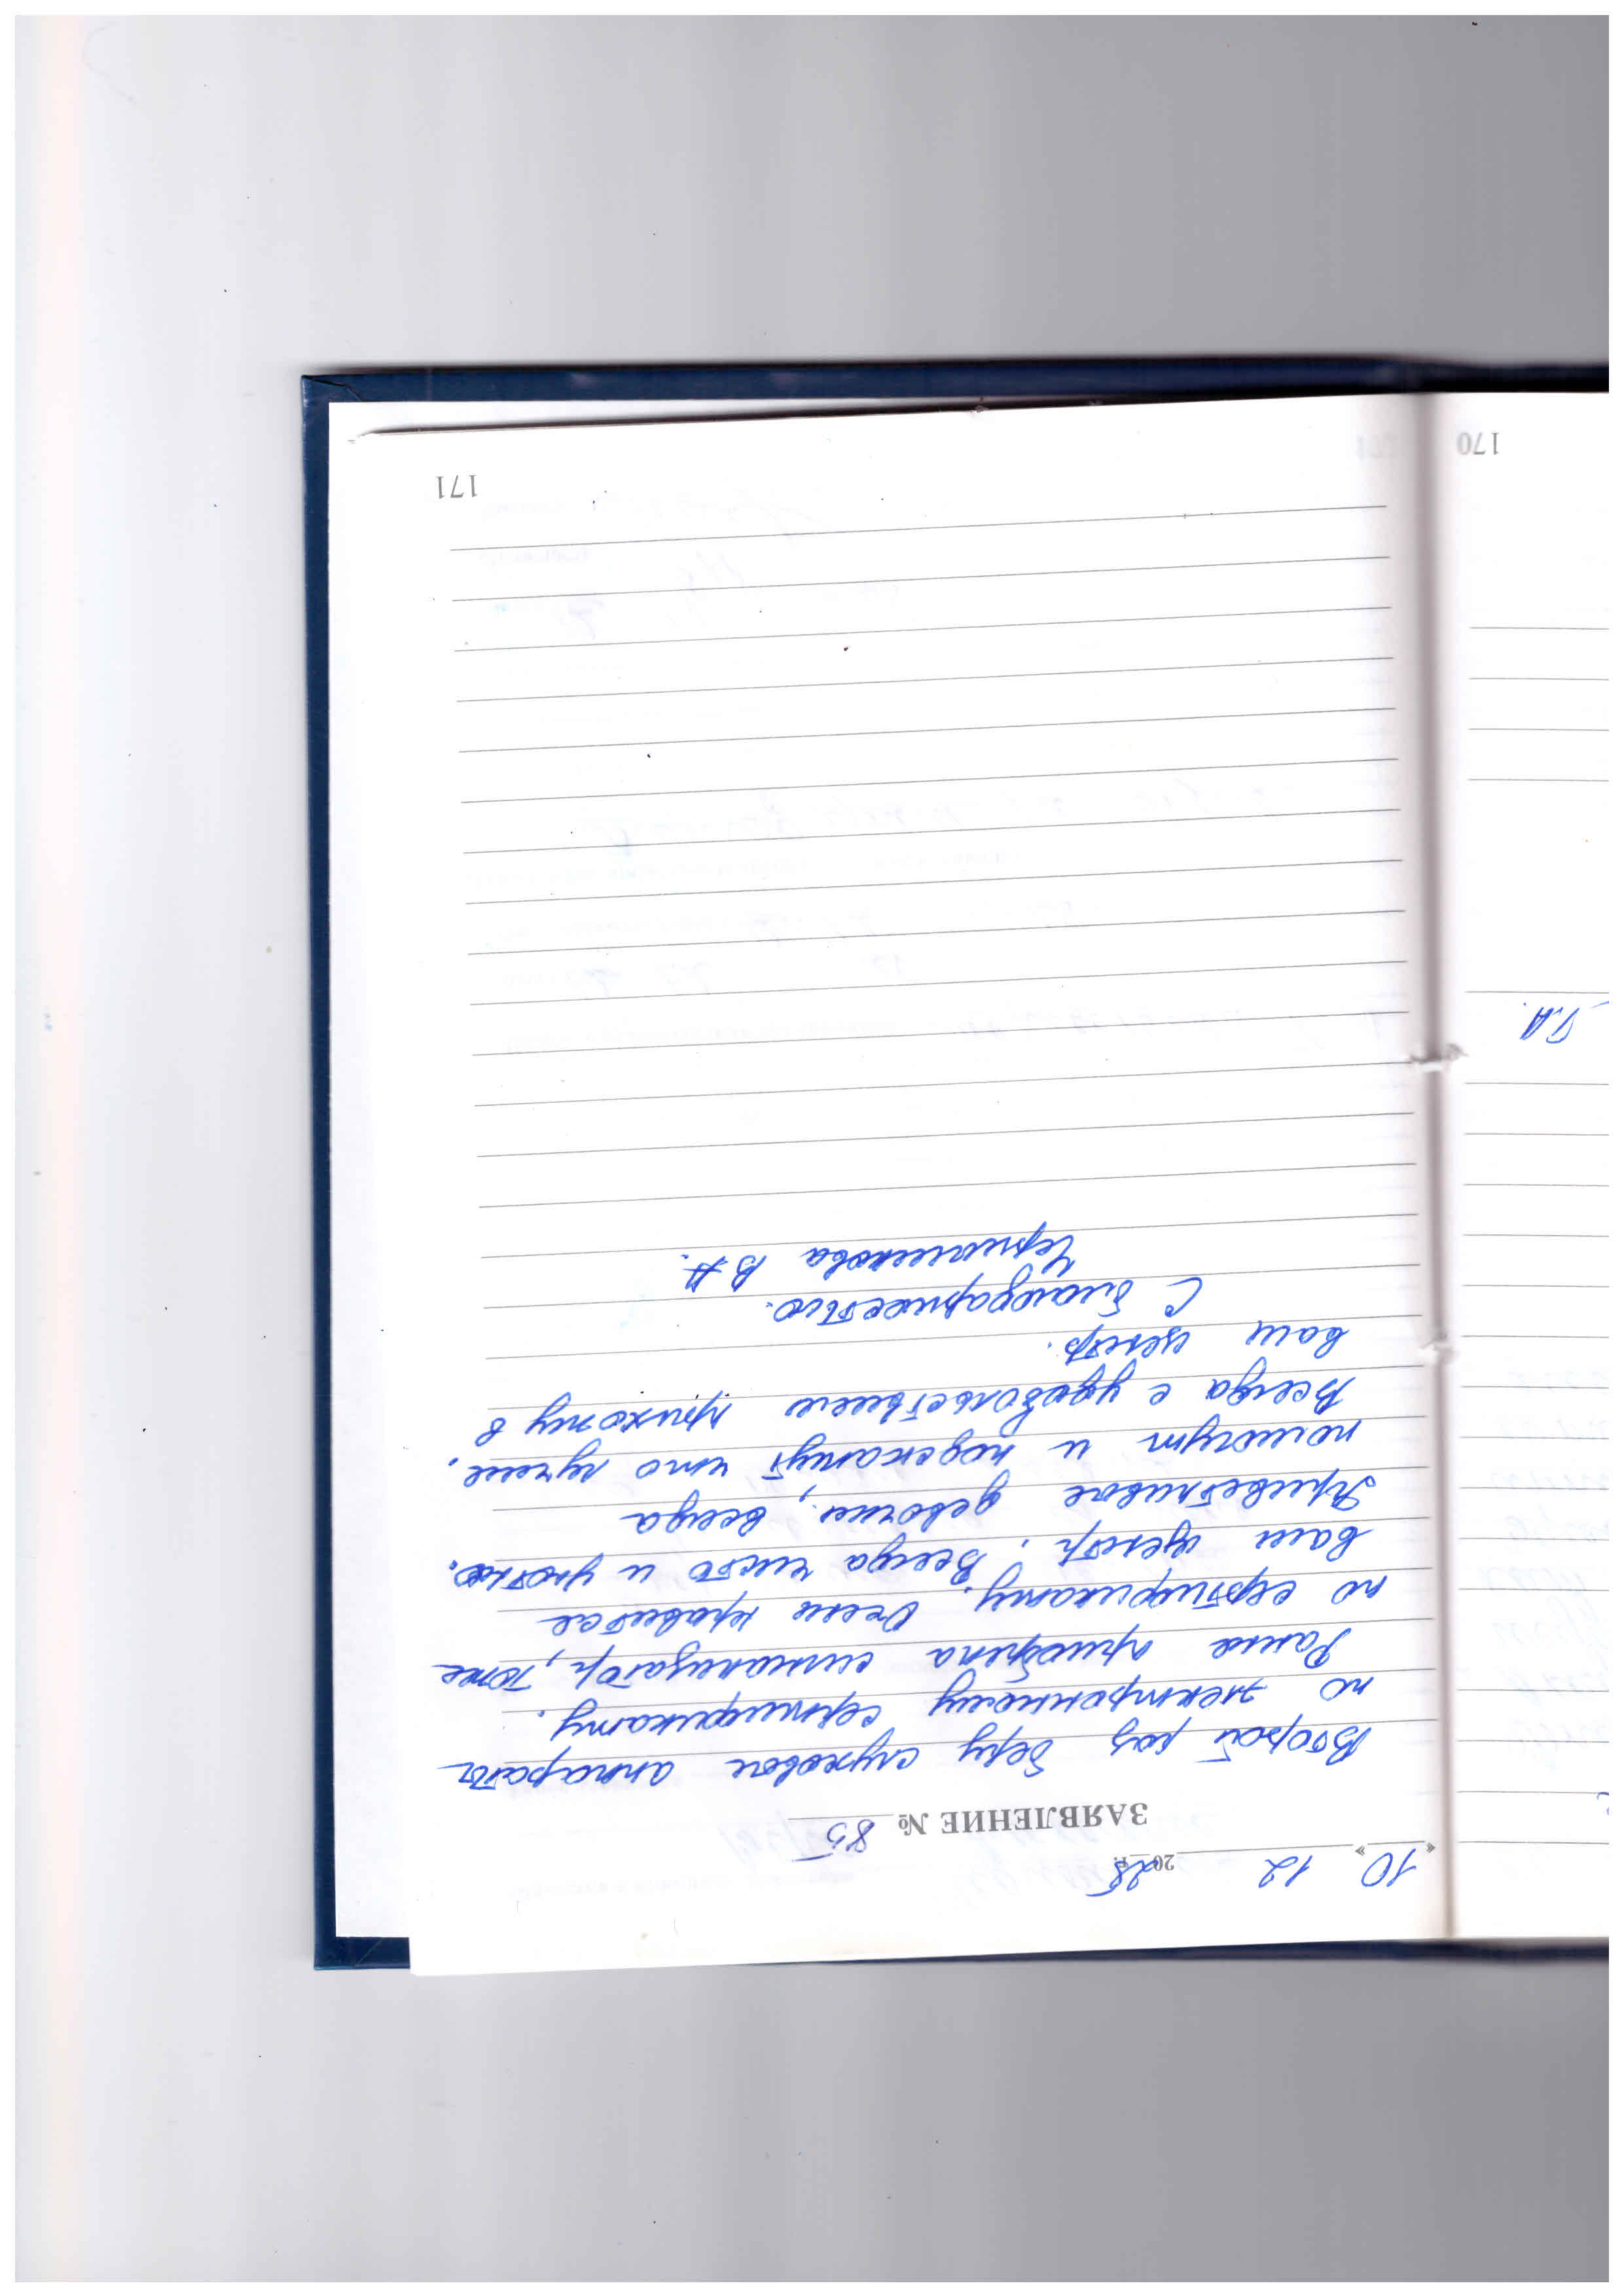 10 12 2025 г.
ЗАЯВЛЕНИЕ № 85
Второй раз беру слуховые аппараты
по электронному сертификату.
Ранее приобрела сигнализатор, тоже
по сертификату. Очень нравится
ваш центр. Всегда чисто и уютно.
Приветливые девочки, всегда
помогут и подскажут что лучше.
Всегда с удовольствием прихожу в
ваш центр.
С благодарностью.
В.А.
171
170
Г.А.